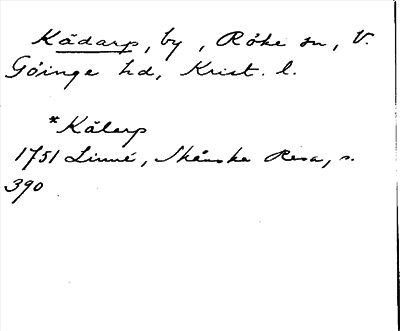 Kådarp, by, Röke sn, V.
Göinge hd, Krist. l.
*Kålarp
1751 Linné, Skånska Resa, s.
390